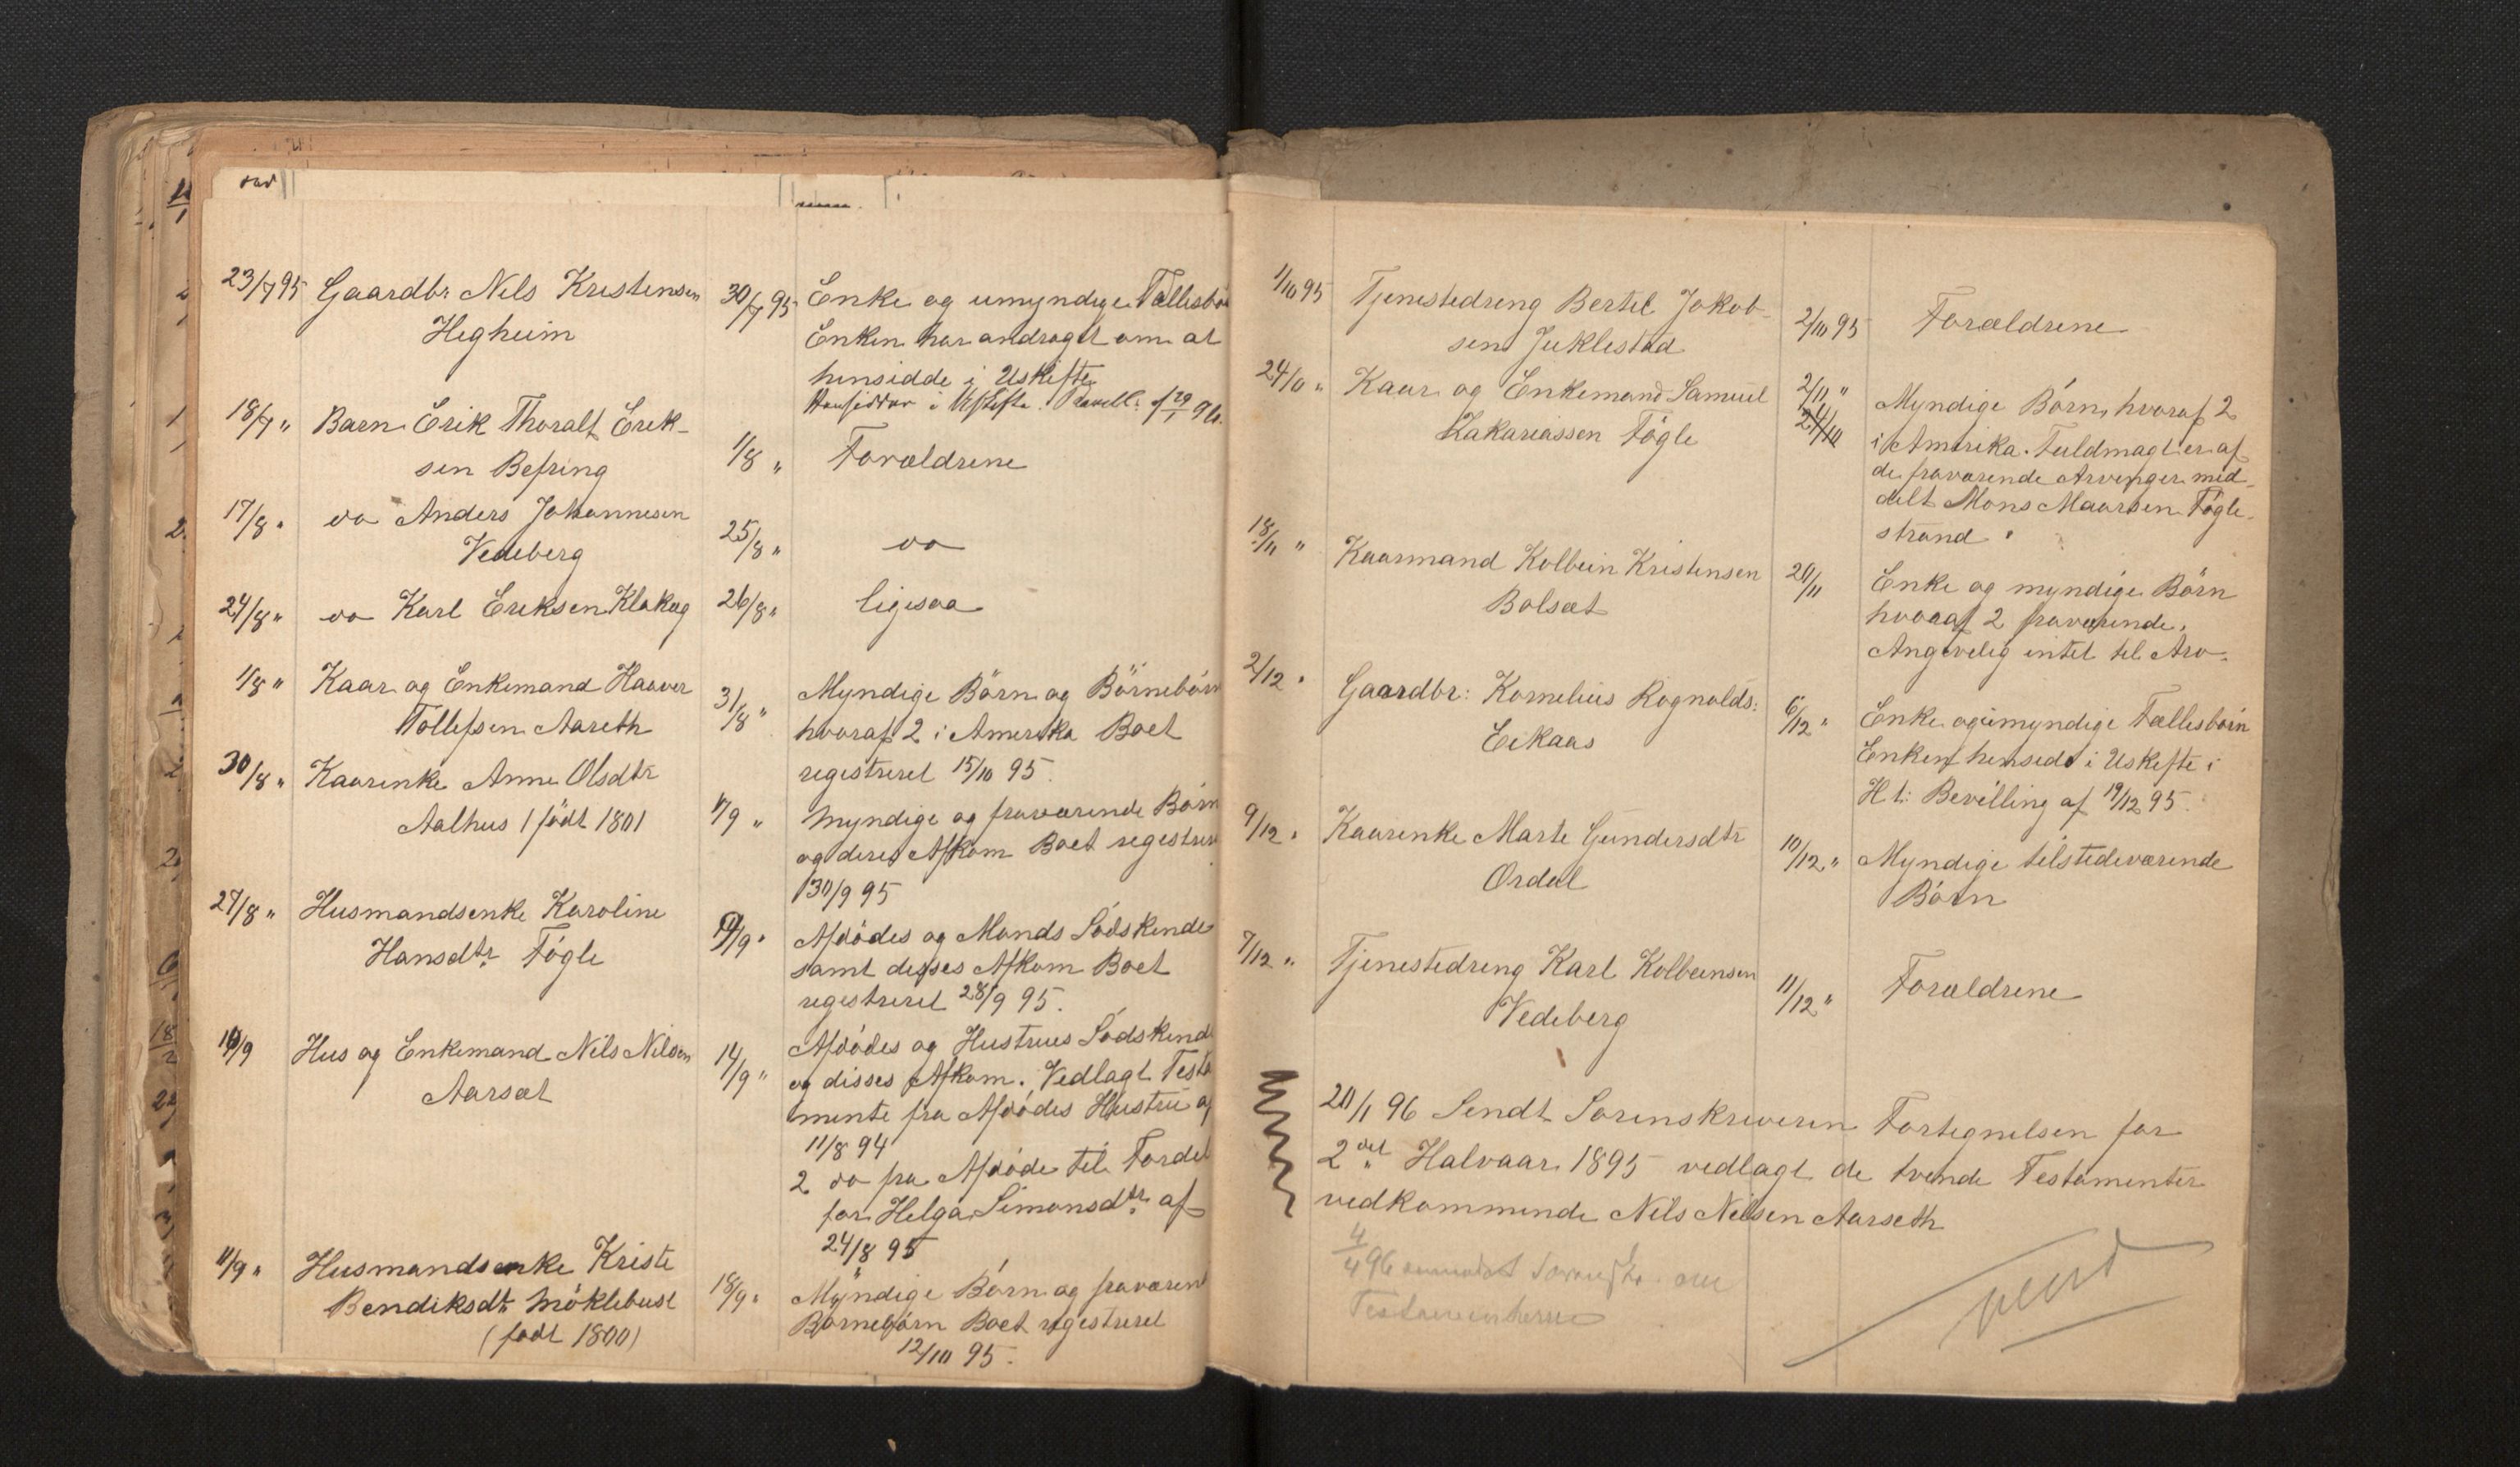 23/7 95 Gaardbr Nels Kristensen 30/7 95 Enke og umyndige Fællesbør
Hegheim Enken har andraget om at
hensidde i Uskifte
Hensidder i Uskifte
18/7 " Barn Erik Thoralf Erik-
sen Befring 1/8 " Forældrene
17/8 " do Anders Johannesen
Vedeberg 25/8 " do
24/8 " do Karl Eriksen Klakeg 26/8 " ligesaa
1/8 " Kaar og Enkemand Haaver 31/8 " Myndige Børn og Børnebørn
Tollefsen Aarseth hvoraf 2 i Amerika Boet
registreret 15/10 95.
30/8 " Kaarenke Anne Olsdtr
Aalhus (født 1801 1/9 " Myndige og fraværende Børn
og deres Afkom Boet registrere
30/9 95
27/8 " Husmandsenke Karoline
Hansdtr Fögle 9/9 " Afdödes og Mands Södskende
samt disses Afkom Boet
registreret 28/9 95.
10/9 Hus og Enkemand Nils Nilsen
Aarsæt 14/9 " Afdödes og Hustrues Södskend
og disses Afkom. Vedlagt Testa
mente fra Afdödes Hustru af
11/8 94
2 do fra Afdöde til Fordel
for Helga Simonsdtr af
24/8 95
11/9 " Husmandsenke Kriste
Bendiksdtr Möklebust
(født 1800) 18/9 " Myndige Børn og fraværen
Børnebørn Boet registreret
12/10 95.
1/10 95 Tjenestedreng Bertel Jakob-
sen Juklestad 2/10 95 Forældrene
24/10 " Kaar og Enkemand Samuel
Zakariassen Fögle 2/11 " Myndige Børn, hvoraf 2
24/10 i Amerika. Fuldmagt er af
de fraværende Arvinger med-
delt Mons Maarsen Fögle-
strand.
18/11 " Kaarmand Kolbein Kristensen
Bolsæt 20/11 Enke og myndige Børn
hvoraf 2 fraværende.
Angivelig intet til Arv.
2/12 " Gaardbr: Kornelius Rognalds:
Eikaas 6/12 " Enke og umyndige Fællesbørn
Enken hensidd i Uskifte i
H t: Bevilling af 19/12 95.
9/12 " Kaarenke Marte Gundersdtr
Ordal 10/12 " Myndige tilstedeværende
Børn
7/12 " Tjenestedreng Karl Kolbeinsen
Vedeberg 11/12 " Forældrene
20/1 96 Sendt Sorenskriveren Fortegnelsen for
2det Halvaar 1895 vedlagt de tvende Testamenter
vedkommende Nils Nilsen Aarseth
4/4 96 om
Testamenterne